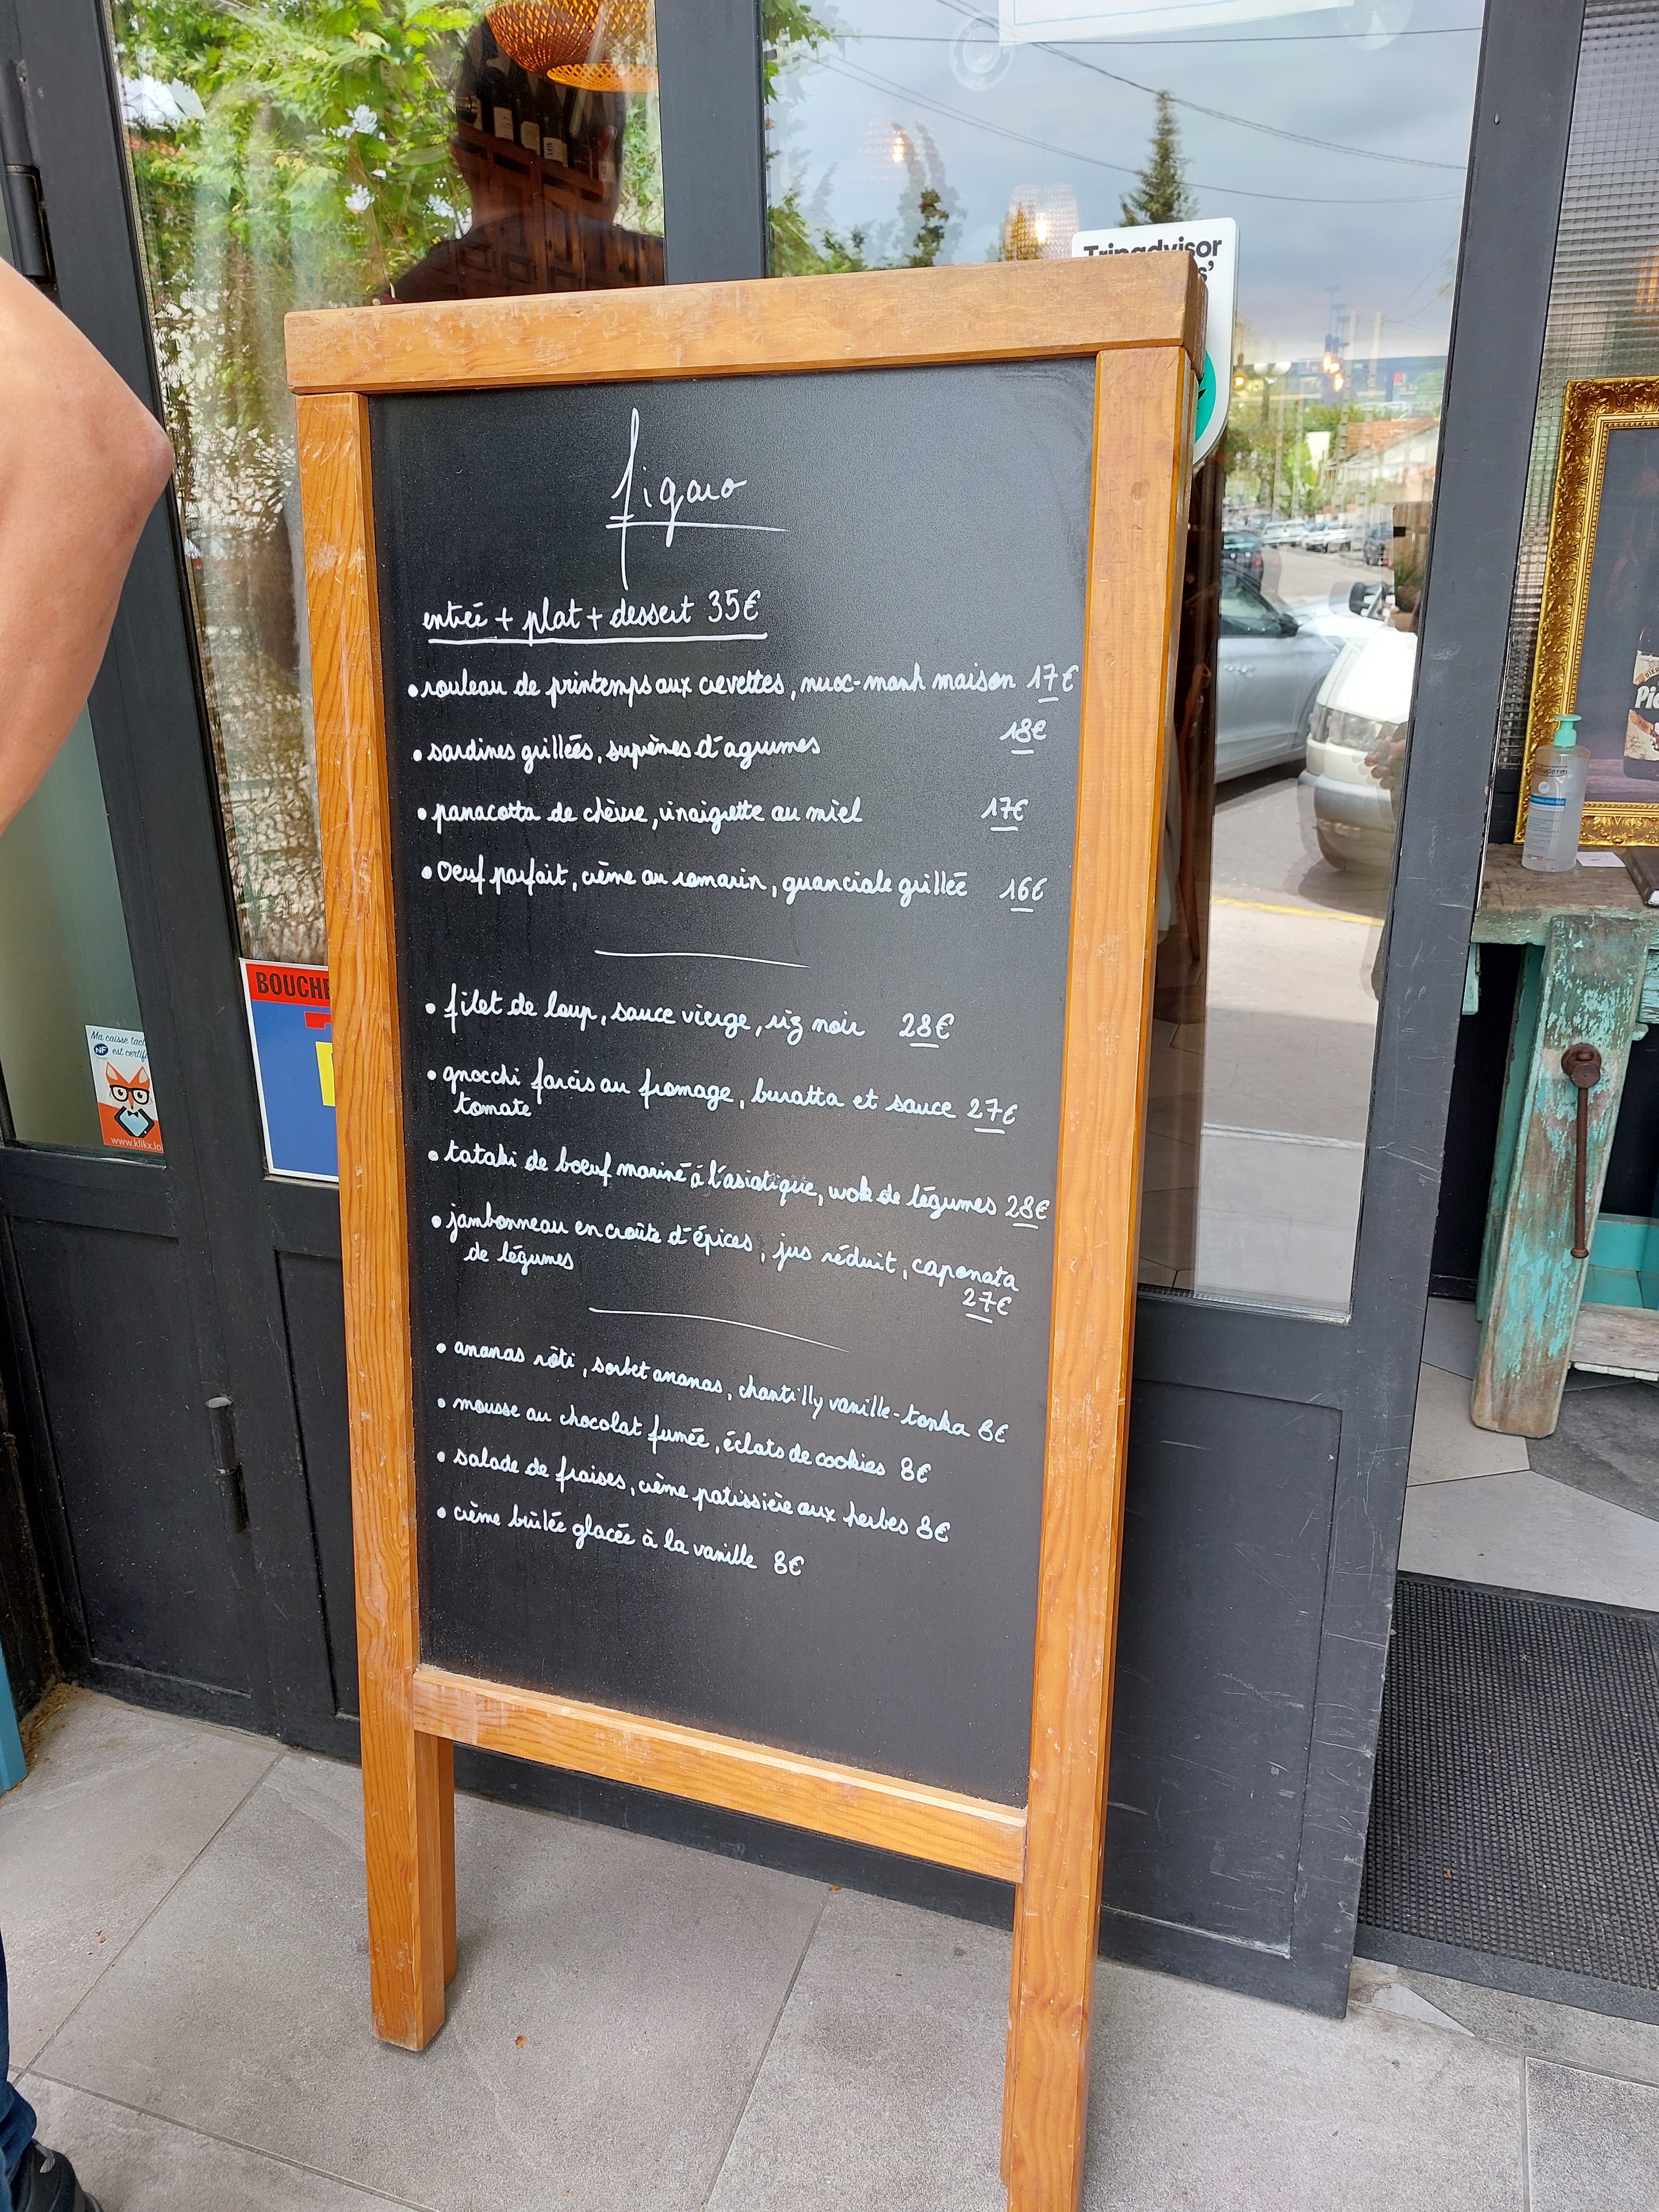 Tripadvisor
figaro
entrée + plat + dessert 35€
• rouleau de printemps aux crevettes, nuoc-manh maison 17€
• sardines grillées, suprèmes d'agrumes 18€
• panacotta de chèvre, vinaigrette au miel 17€
• Oeuf parfait, crème au romarin, guanciale grillée 16€
• filet de loup, sauce vierge, riz noir 28€
• gnocchi farcis au fromage, buratta et sauce 27€
tomate
• tataki de boeuf mariné à l'asiatique, wok de légumes 28€
• jambonneau en croûte d'épices, jus réduit, caponata
de légumes
27€
• ananas rôti, sorbet ananas, chantilly vanille-tonka 8€
• mousse au chocolat fumée, éclats de cookies 8€
• salade de fraises, crème patissière aux herbes 8€
• crème brûlée glacée à la vanille 8€
BOUCHE
Ma caisse tact
NF est certifi
www.klikx.lo